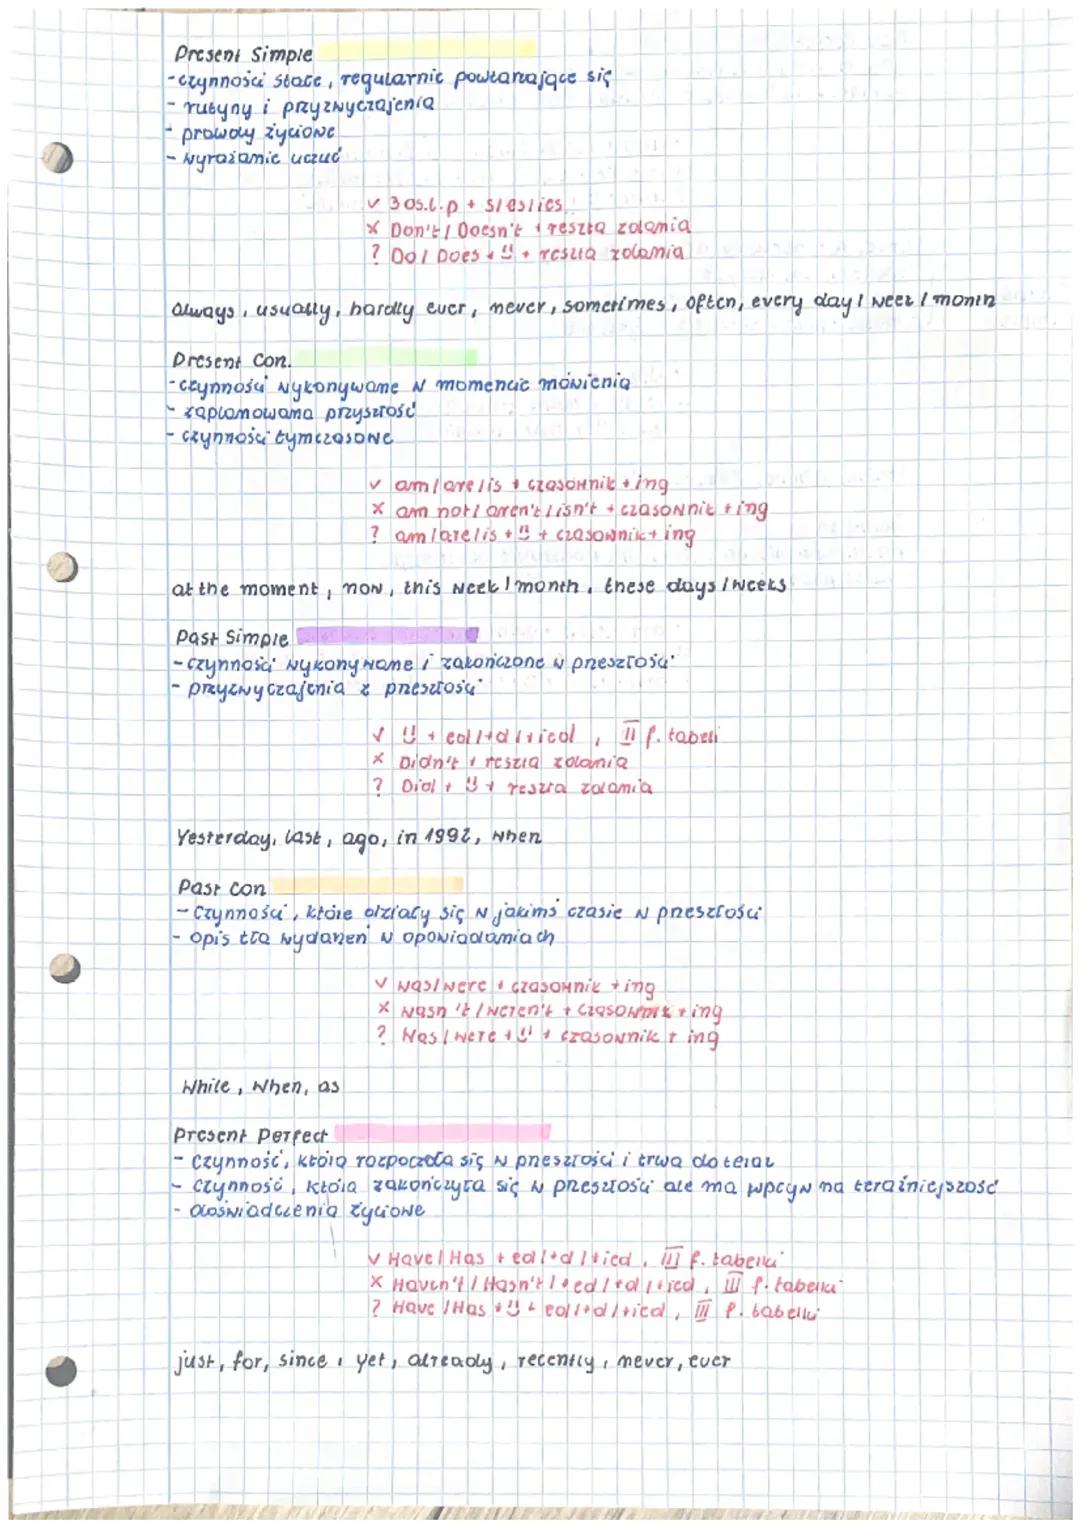 Present Simple
- czynności stałe, regularnie powtarzające się
- rutyny i przyzwyczajenia
- prawdy życiowe
- wyrażanie uczuć
✓ 3 os.l.p + s/es/ies
× Don't / Doesn't + reszta zdania
? Do / Does + ü + reszta zdania
always, usually, hardly ever, never, sometimes, often, every day / week / month
Present Con.
- czynności wykonywane w momencie mówienia
- zaplanowana przyszłość
- czynności tymczasowe
✓ am / are / is + czasownik + ing
× am not / aren't / isn't + czasownik + ing
? am / are / is + ü + czasownik + ing
at the moment, now, this week / month, these days / weeks
Past Simple
- czynności wykonywane i zakończone w przeszłości
- przyzwyczajenia z przeszłości
✓ ü + ed / +d / +ied, II f. tabeli
× Didn't + reszta zdania
? Did + ü + reszta zdania
Yesterday, last, ago, in 1992, when
Past con
- Czynności, które działy się w jakimś czasie w przeszłości
- opis tła wydarzeń w opowiadaniach
✓ was / were + czasownik + ing
× wasn't / weren't + czasownik + ing
? Was / were + ü + czasownik + ing
While, when, as
Present Perfect
- Czynność, która rozpoczęła się w przeszłości i trwa do teraz
- czynność, która zakończyła się w przeszłości ale ma wpływ na teraźniejszość
- doświadczenia życiowe
✓ Have / Has + ed / +d / +ied, III f. tabelki
× Haven't / Hasn't / + ed / +d / +ied, III f. tabelki
? Have / Has + ü + ed / +d / +ied, III f. tabelki
just, for, since, yet, already, recently, never, ever